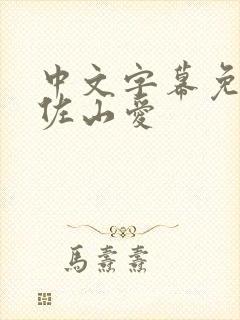 中文字幕免
佐山爱
馬熹熹